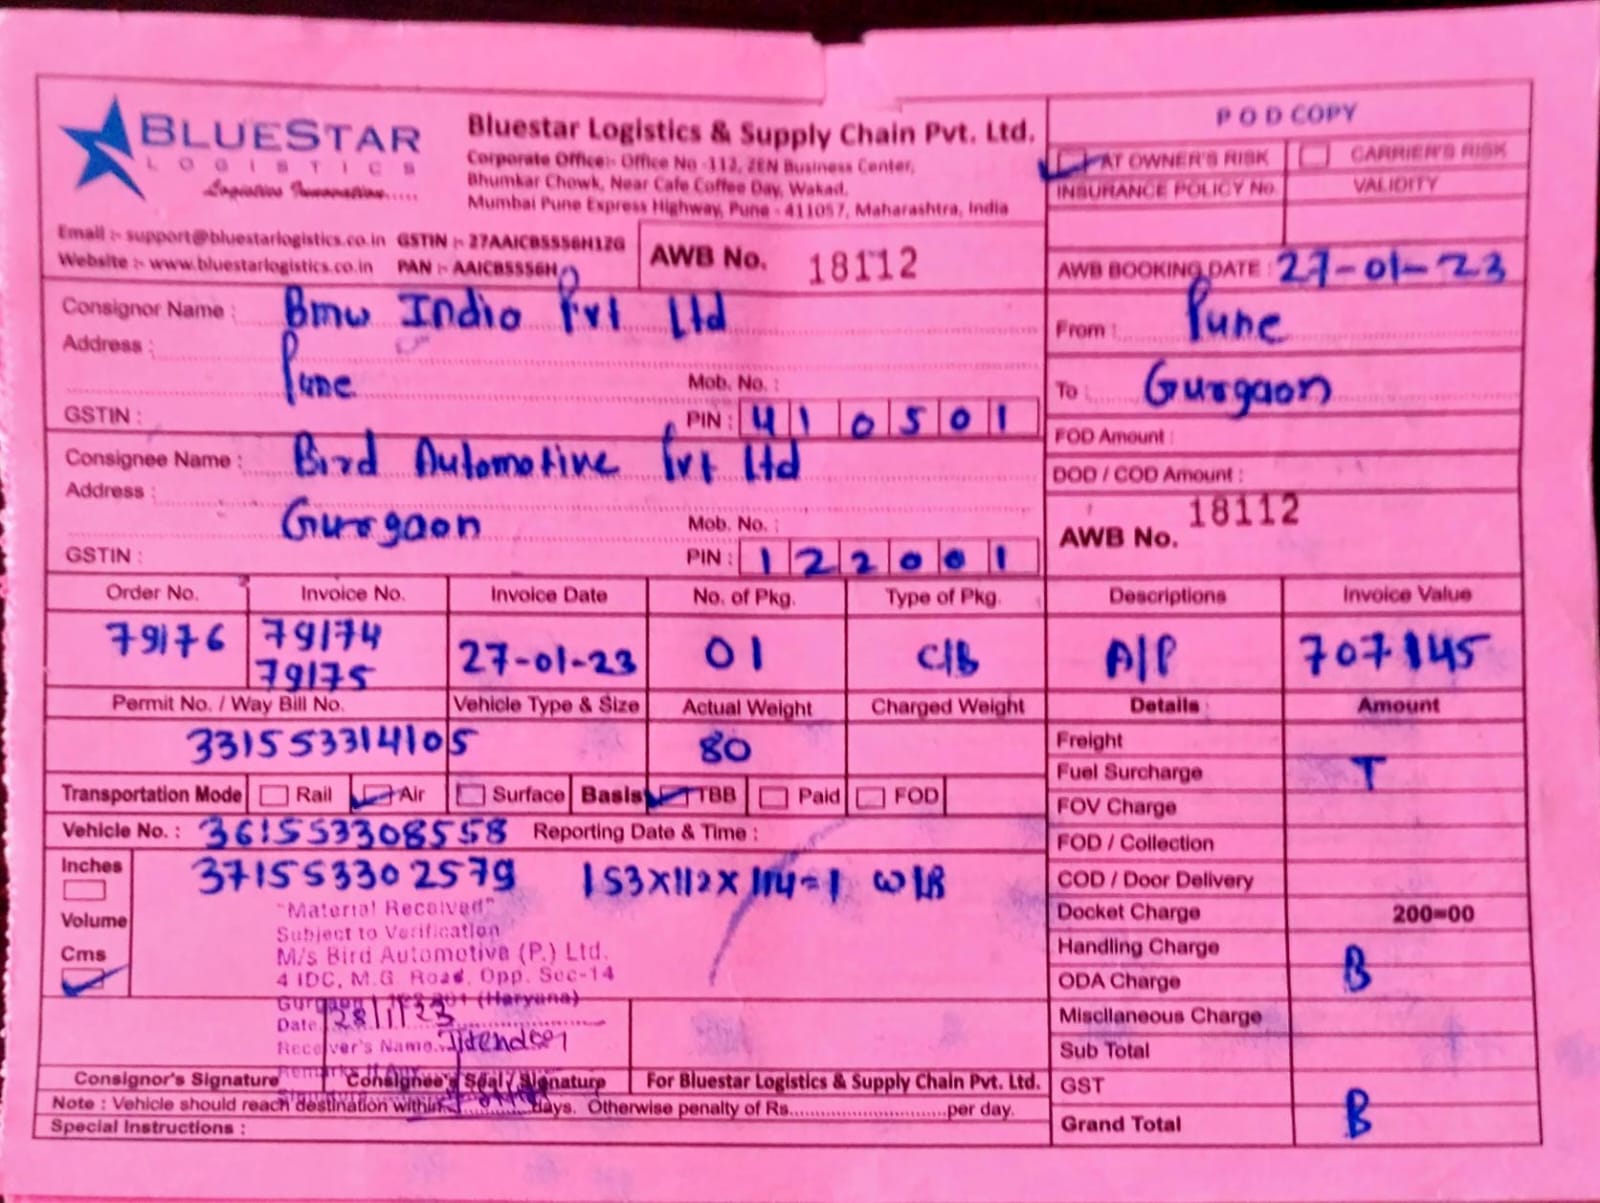 BLUESTAR
LOGISTICS
Logistics Innovation.....
Bluestar Logistics & Supply Chain Pvt. Ltd.
Corporate Office:- Office No -112, ZEN Business Center,
Bhumkar Chowk, Near Cafe Coffee Day, Wakad,
Mumbai Pune Express Highway, Pune - 411057, Maharashtra, India
P O D COPY
AT OWNER'S RISK CARRIER'S RISK
INSURANCE POLICY No. VALIDITY
Email :- support@bluestarlogistics.co.in GSTIN :- 27AAICB5556H1ZG
Website :- www.bluestarlogistics.co.in PAN :- AAICB5556H
AWB No. 18112
AWB BOOKING DATE : 27-01-23
Consignor Name : Bmw India Pvt Ltd
Address :
Pune Mob. No. :
GSTIN : PIN : 410501
From : Pune
To : Gurgaon
FOD Amount :
DOD / COD Amount :
Consignee Name : Bird Automotive Pvt Ltd
Address :
Gurgaon Mob. No. :
GSTIN : PIN : 122001
AWB No. 18112
Order No. Invoice No. Invoice Date No. of Pkg. Type of Pkg. Descriptions Invoice Value
79176 79174 27-01-23 01 C/B A/P 707145
79175
Permit No. / Way Bill No. Vehicle Type & Size Actual Weight Charged Weight Details Amount
331553314105 80
Freight
Fuel Surcharge T
Transportation Mode Rail Air Surface Basis TBB Paid FOD
FOV Charge
Vehicle No. : 361553308558 Reporting Date & Time :
FOD / Collection
Inches 371553302579 153X112X114=1 W/B
COD / Door Delivery
Docket Charge 200=00
Volume
Handling Charge
Cms
ODA Charge B
"Material Received"
Subject to Verification
M/s Bird Automotive (P.) Ltd.
4 IDC, M.G. Road, Opp. Sec-14
Gurgaon (Haryana)
Date 28/1/23
Receiver's Name Jitender
Remarks If Any
Miscllaneous Charge
Sub Total
Consignor's Signature Consignee's Seal / Signature For Bluestar Logistics & Supply Chain Pvt. Ltd.
GST
Note : Vehicle should reach destination within days. Otherwise penalty of Rs.................................per day.
Grand Total B
Special Instructions :